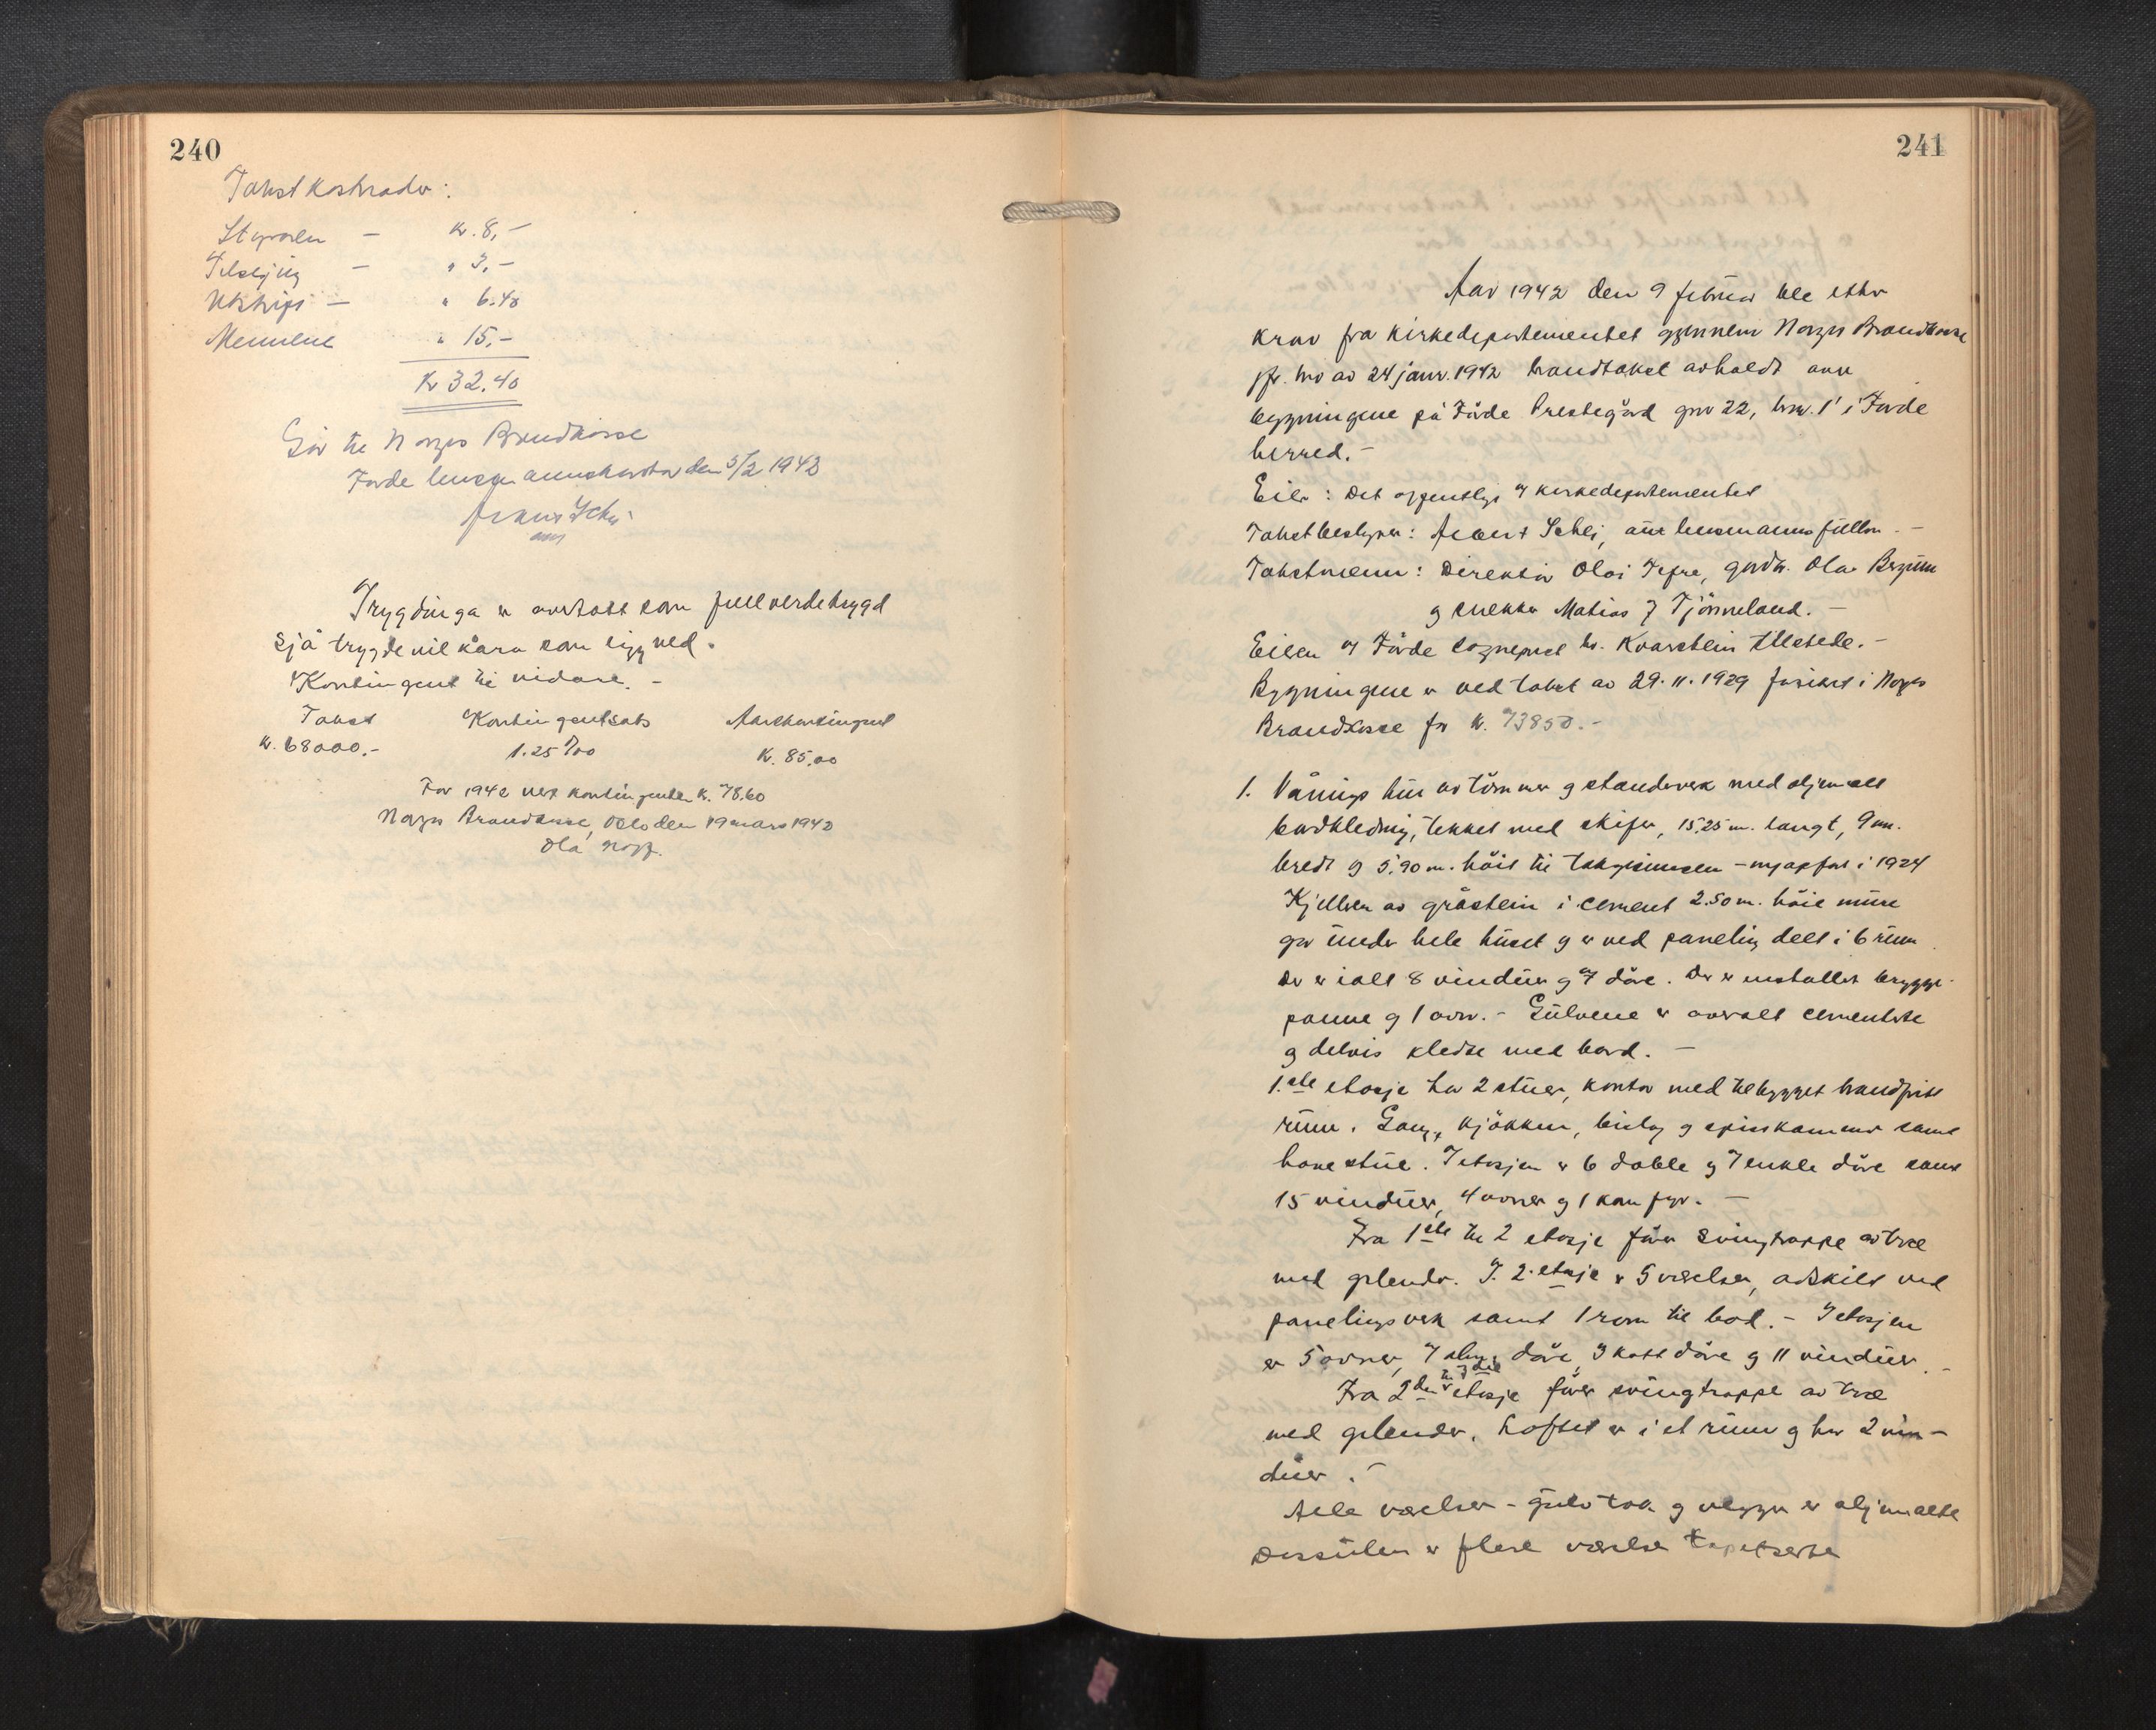 240
Takstkostnader:
Styraren - kr. 8,-
Tilsyn - " 3,-
Utskrift - " 6.40
Mennene " 15,-
Kr 32.40
Går til Norges Brandkasse
Førde lensmannskontor den 5/2 1942
Trygdinga er overtatt som fullverdetrygd
sjå trygdevilkåra som ligg ved.
Kontingent til vidare. -
Takst Kontingentsats Årskontingent
kr. 68000.- 1.25 ‰ Kr. 85,00
For 1942 vert kontingenten kr. 78.60
Norges Brandkasse, Oslo den 19 mars 1942
Ola
241
Aar 1942 den 9 februar ble etter
krav fra kirkedepartementet gjennem Norges Brandkasse
jfr. brv av 24 janr. 1942 brandtakst avholdt over
bygningene på Førde Prestegård gnr 22, bnr. 1 i Førde
herred. -
Eier: Det offentlige v kirkedepartementet
Takstbestyrer: Schei, aut lensmannsfullm. -
Takstmenn: Direktør Olai Tefre, gardbr. Olav Bergum
og snekker Matias J Tjönneland. -
Eieren v Förde sogneprest hr. Kvarstein tilstede. -
Bygningene er ved takst av 29.11.1929 forsikret i Norges
Brandkasse for kr. 73850.-
1. Vånings hus av tömmer og standerverk med oljemalt
bordkledning, tekket med skifer, 15,25 m. langt, 9 m.
bredt og 5,90 m. höit til takgesimsen - nyopført i 1924
Kjelleren av gråstein i cement 2.50 m. höie mure
går under hele huset og er ved paneling delt i 6 rum.
Der er ialt 8 vinduer og 7 döre. Der er installert brygge-
panne og 1 ovn. - Gulvene er overalt cementerte
og delvis kledte med bord. -
1.ste etasje har 2 stuer, kontor med tilbygget brandfritt
rum. Gang, kjökken, bislag og spiskammer samt
havestue. I etasjen er 6 doble og 7 enkle döre samt
15 vinduer, 4 ovner og 1 komfyr. -
Fra 1ste til 2 etasje förer svingtrappe av tre
med gelender. I 2. etasje er 5 værelser, adskilt ved
panelingsverk samt 1 rom til bod. - I etasjen
er 5 ovner, 7 alm. döre, 3 kott döre og 11 vinduer. -
Fra 2den til 3die etasje förer svingtrappe av tre
med gelender. Loftet er i et rum og har 2 vin-
duer. -
Alle værelser - gulv tak og vegger er oljemalte
Dessuten er flere værelser tapetserte